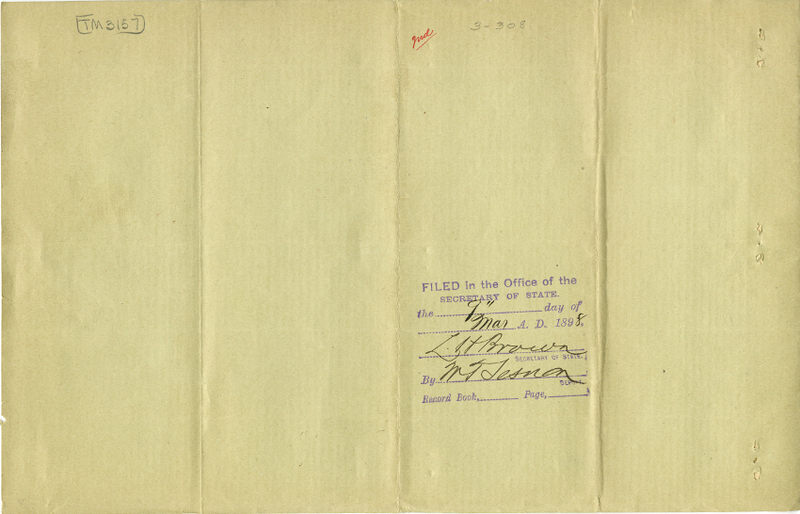 TM3157
3-308
FILED in the Office of the
SECRETARY OF STATE.
the 7" day of
Mar A. D. 1898.
L. H. Brown
SECRETARY OF STATE.
By
DEPUTY.
Record Book, Page,